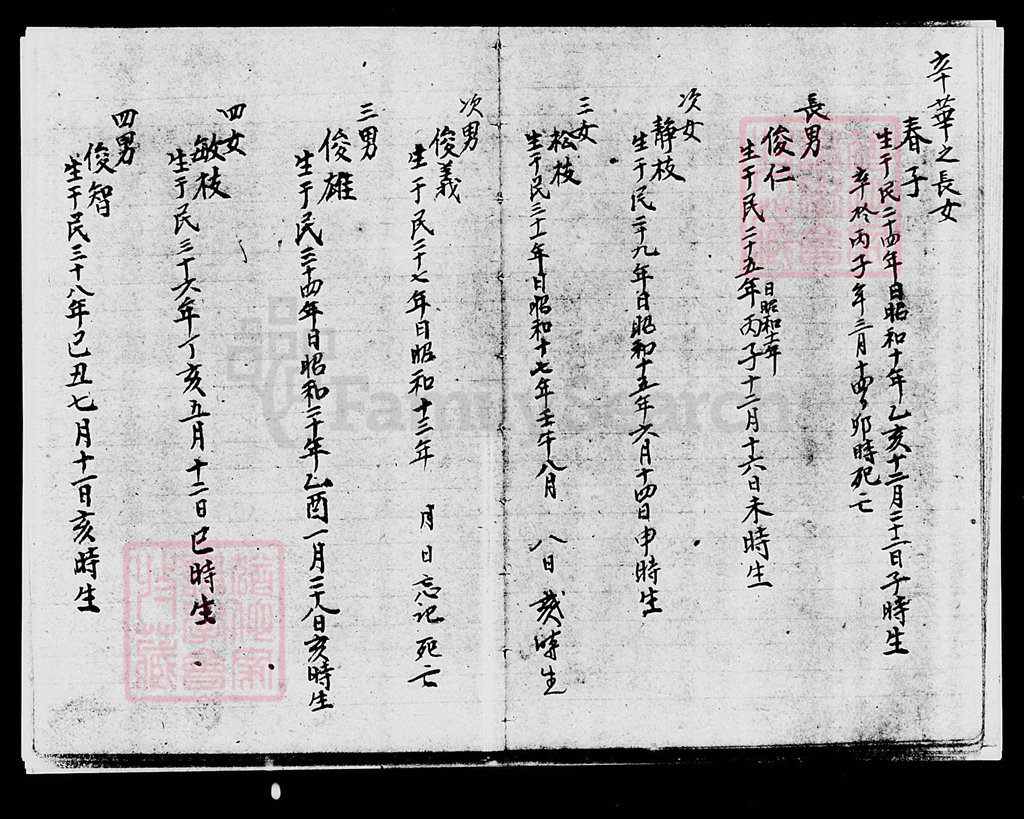 辛華之長女
春子
生于民二十四年日昭和十年乙亥十二月二十一日子時生
卒於丙子年三月十四日卯時死亡
長男
俊仁
生于民二十五年丙子十二月十六日未時生
日昭和十一年
次女
静枝
生于民二十九年日昭和十五年六月十四日申時生
三女
松枝
生于民三十一年日昭和十七年壬午八月 八日 時生
次男
俊義
生于民二十七年日昭和十三年 月日忘记死亡
三男
俊雄
生于民三十四年日昭和二十年乙酉一月二十八日亥時生
四女
敏枝
生于民三十六年丁亥五月十二日巳時生
四男
俊智
生于民三十八年己丑七月十一日亥時生
FamilySearch